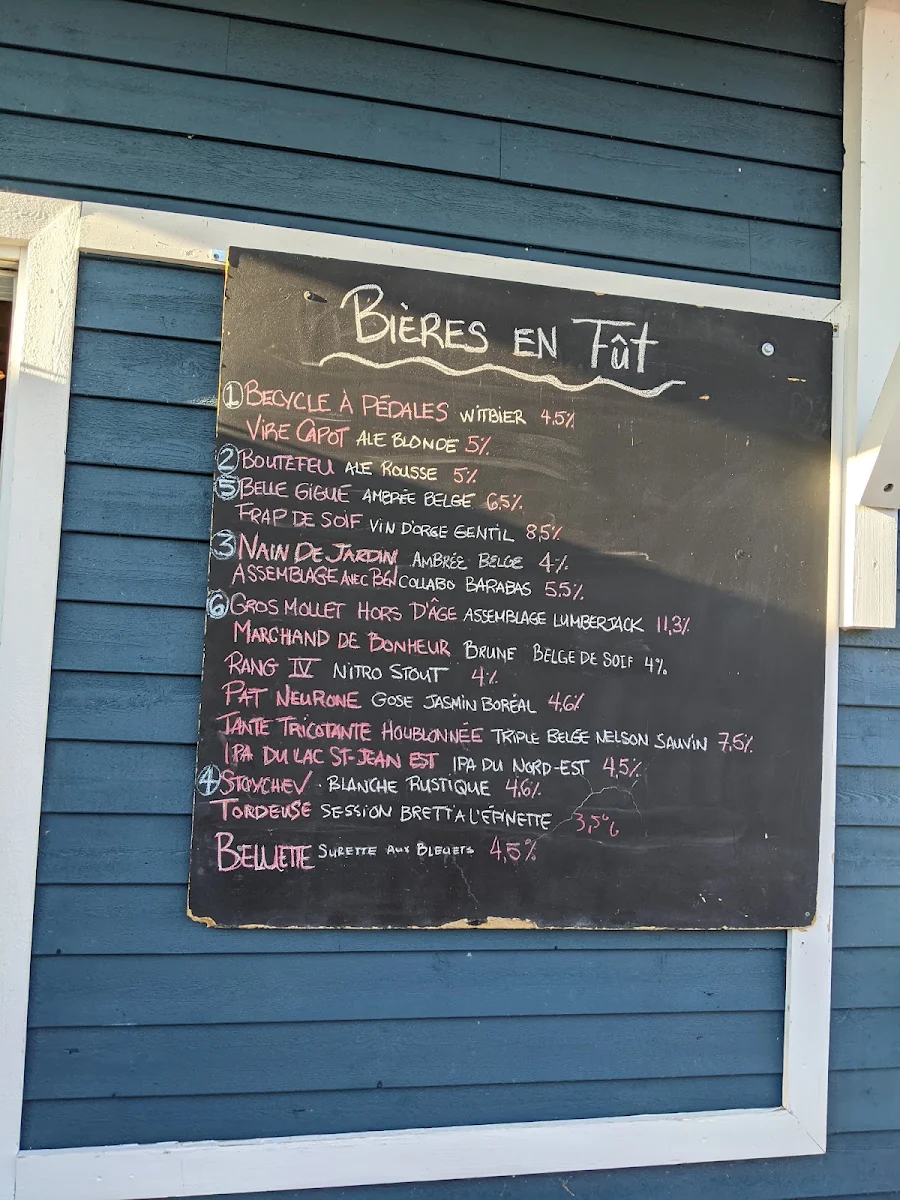 Bières en Fût
① Becycle à Pédales Witbier 4.5%
Vire Capot Ale Blonde 5%
② Boutefeu Ale Rousse 5%
⑤ Belle Gigue Ambrée Belge 6,5%
Frap de Soif Vin d'Orge Gentil 8,5%
③ Nain de Jardin Ambrée Belge 4%
Assemblage avec BGN Collabo Barabas 5.5%
⑥ Gros Mollet Hors d'Âge Assemblage Lumberjack 11,3%
Marchand de Bonheur Brune Belge de Soif 4%
Rang IV Nitro Stout 4%
Pat Neurone Gose Jasmin Boréal 4,6%
Tante Tricotante Houblonnée Triple Belge Nelson Sauvin 7,6%
IPA du Lac St-Jean Est IPA du Nord-Est 4,5%
④ Stoychev · Blanche Rustique 4,6%
Tordeuse Session Brett à l'Épinette 3,5%
Beluette Surette aux Bleuets 4,5%